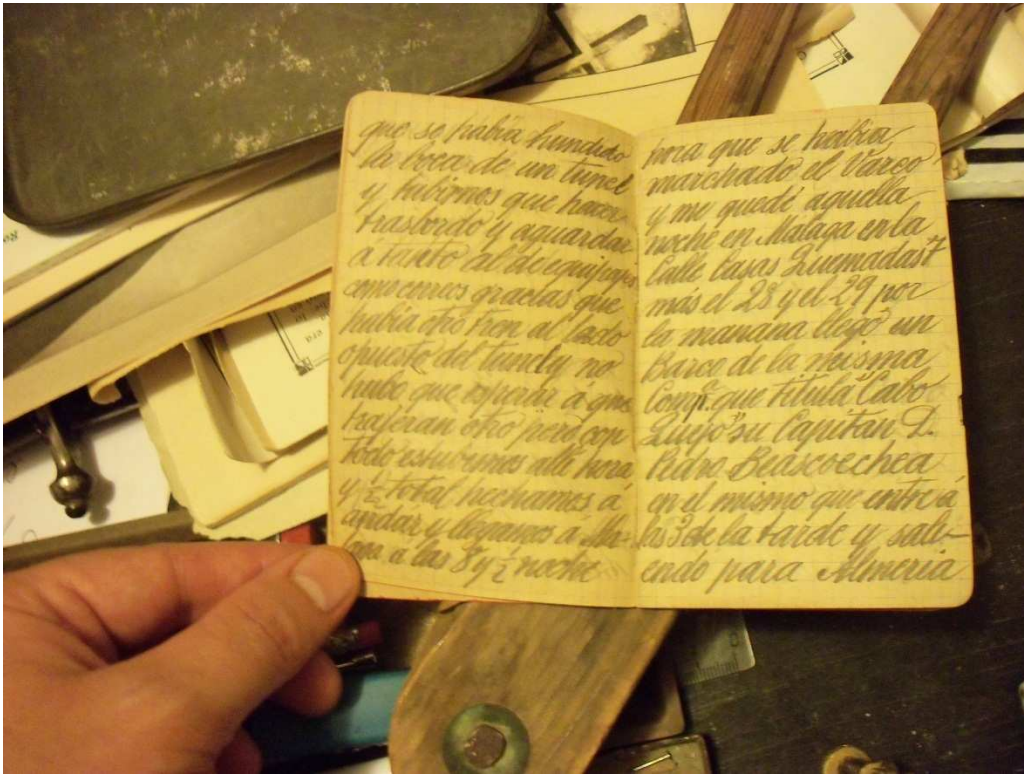 que se habia hundido
la boca de un tunel
y tubimos que hacer
trasbordo y aguardar
á tanto al de equipages
como correos gracias que
habia otro tren al lado
opuesto del tunel y no
hubo que esperar á que
trajeran otro pero con
todo estuvimos allí hora
y ½ total hechamos á
andar y llegamos á Ma-
laga a las 8 y ½ noche
hora que se habia
marchado el Varco
y me quedé aquella
noche en Malaga en la
Calle Casas Quemadas 7
más el 28 y el 29 por
la mañana llegó un
Barco de la misma
Comp.ª que titula "Cabo
Quejo" su Capitan D.
Pidro Beascoechea
en el mismo que entré á
las 3 de la tarde y sali-
endo para Almeria